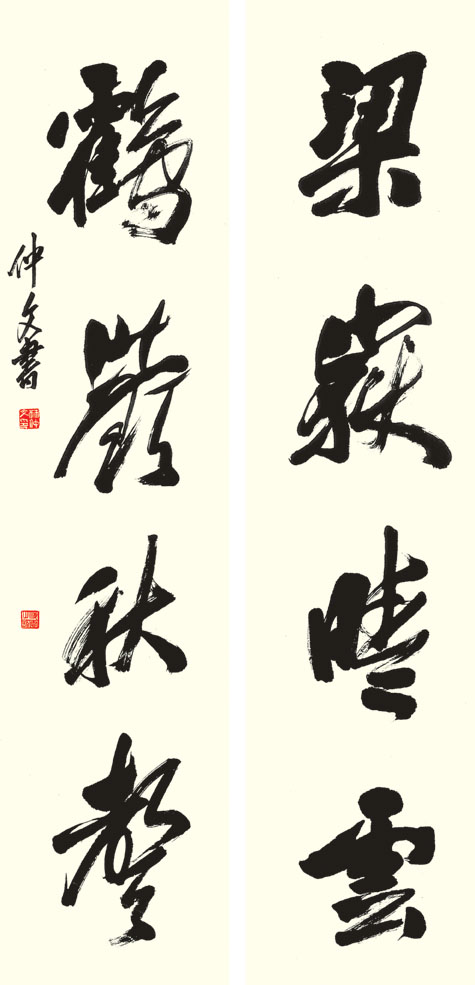 梁嶽晴雲
鶴嶺秋聲
仲文書